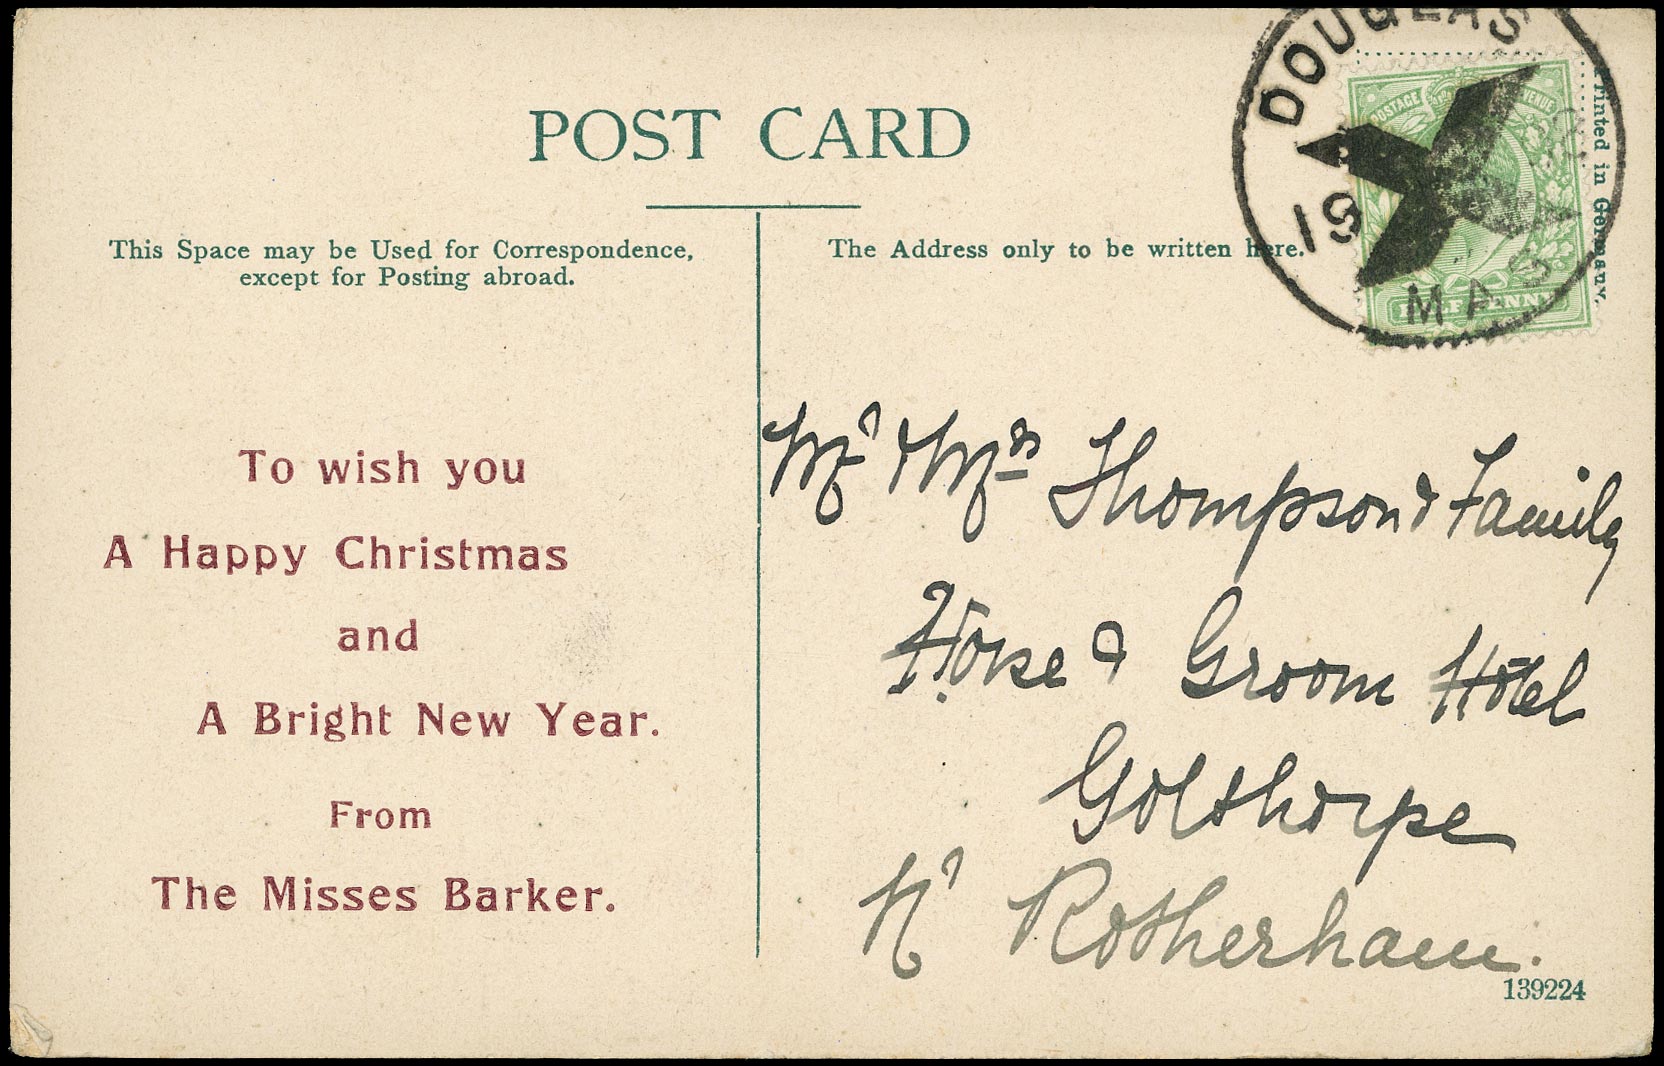 POST CARD
This Space may be Used for Correspondence,
except for Posting abroad.
The Address only to be written here.
DOUGLAS
19
MAS
POSTAGE
HALFPENNY
Printed in Germany.
To wish you
A Happy Christmas
and
A Bright New Year.
From
The Misses Barker.
Mr & Mrs Thompson & Family
Horse & Groom Hotel
Golthorpe
Nr Rotherham.
139224